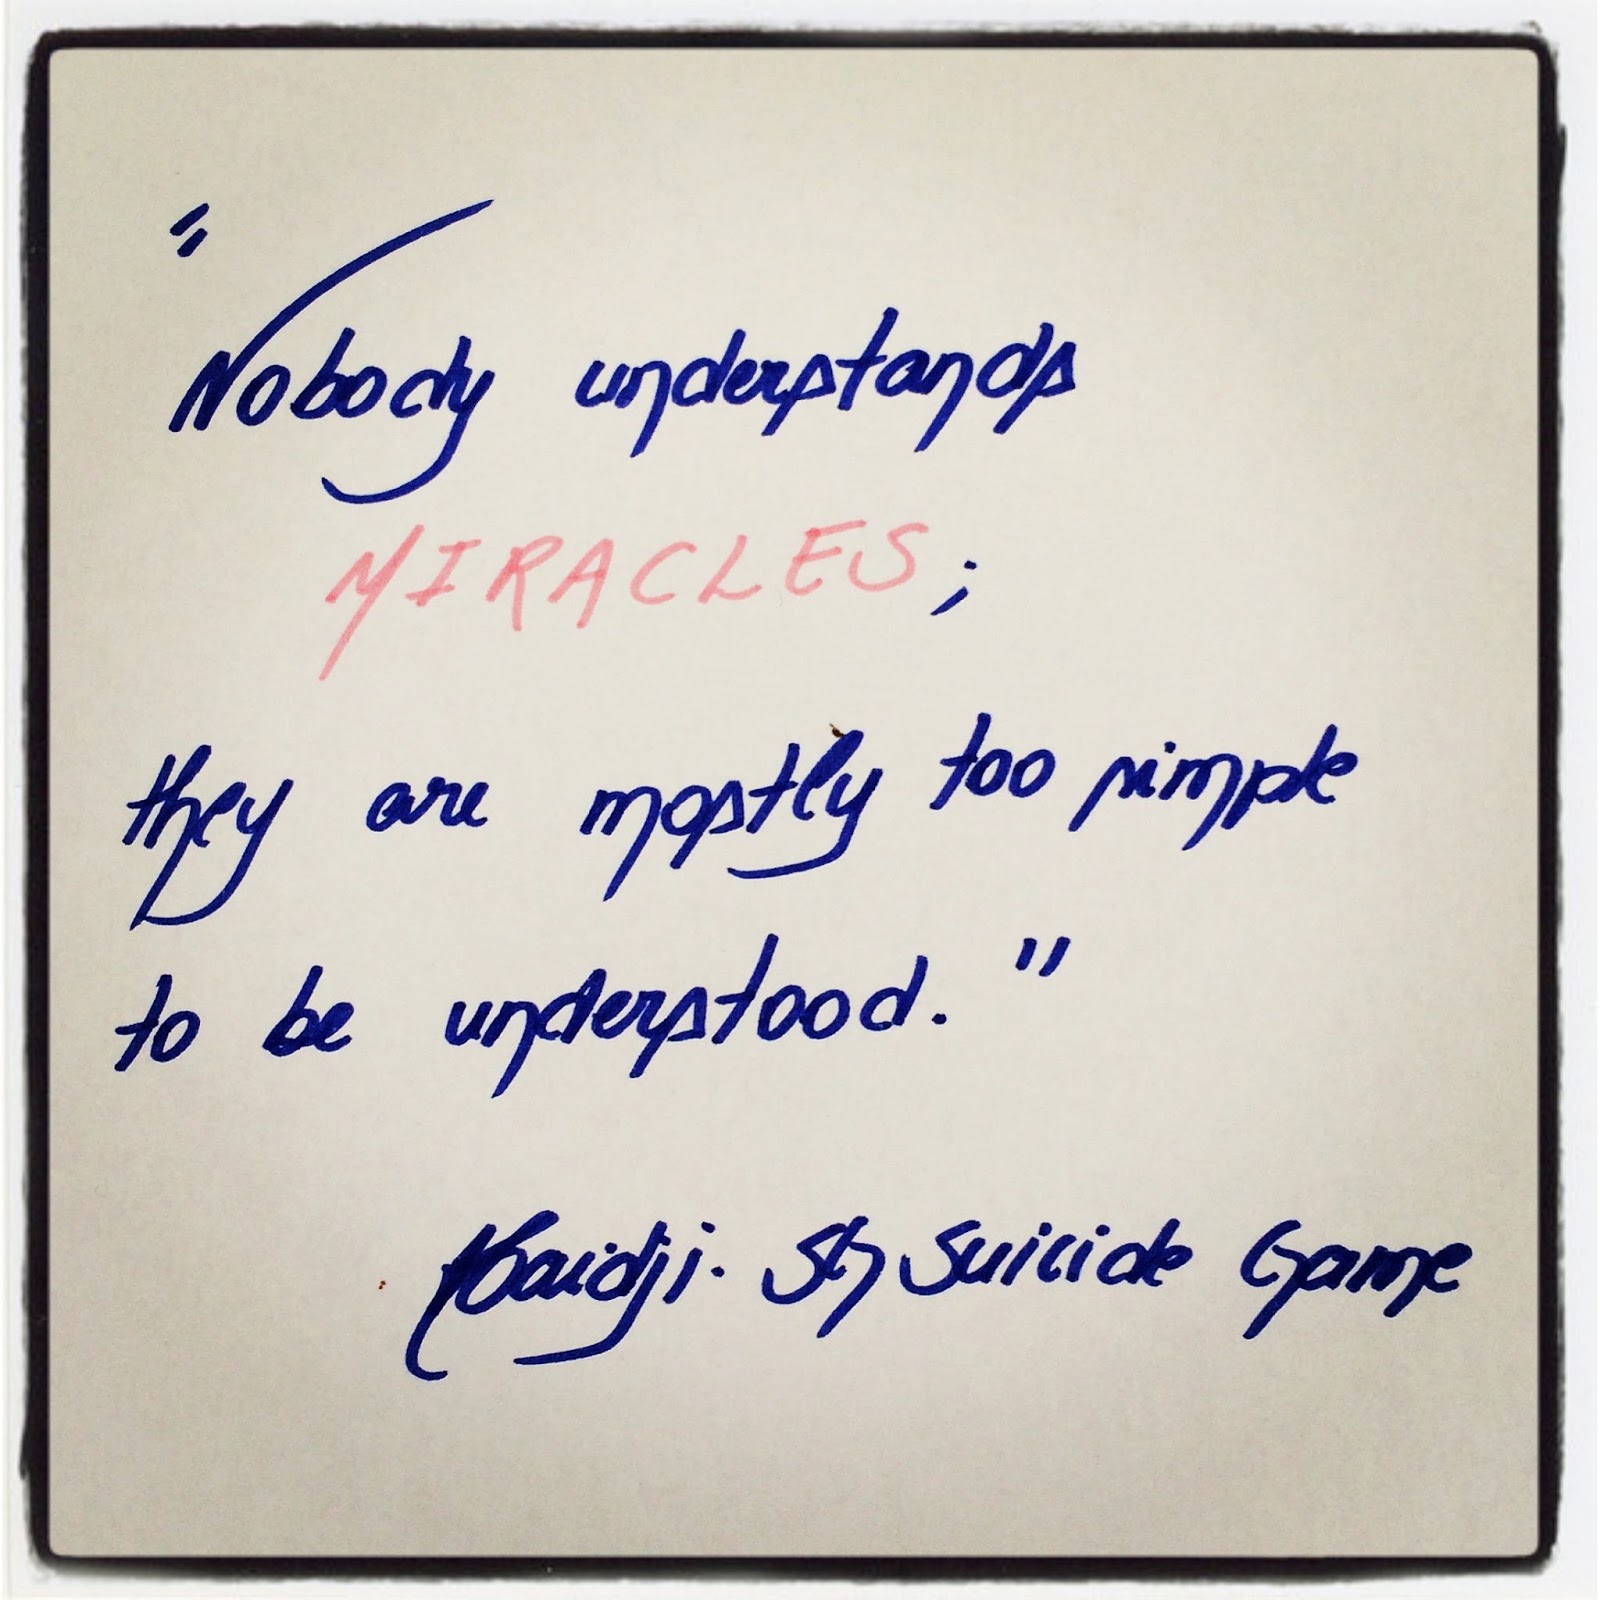 "Nobody understands
MIRACLES;
they are mostly too simple
to be understood."
Haidji. SG Suicide Game